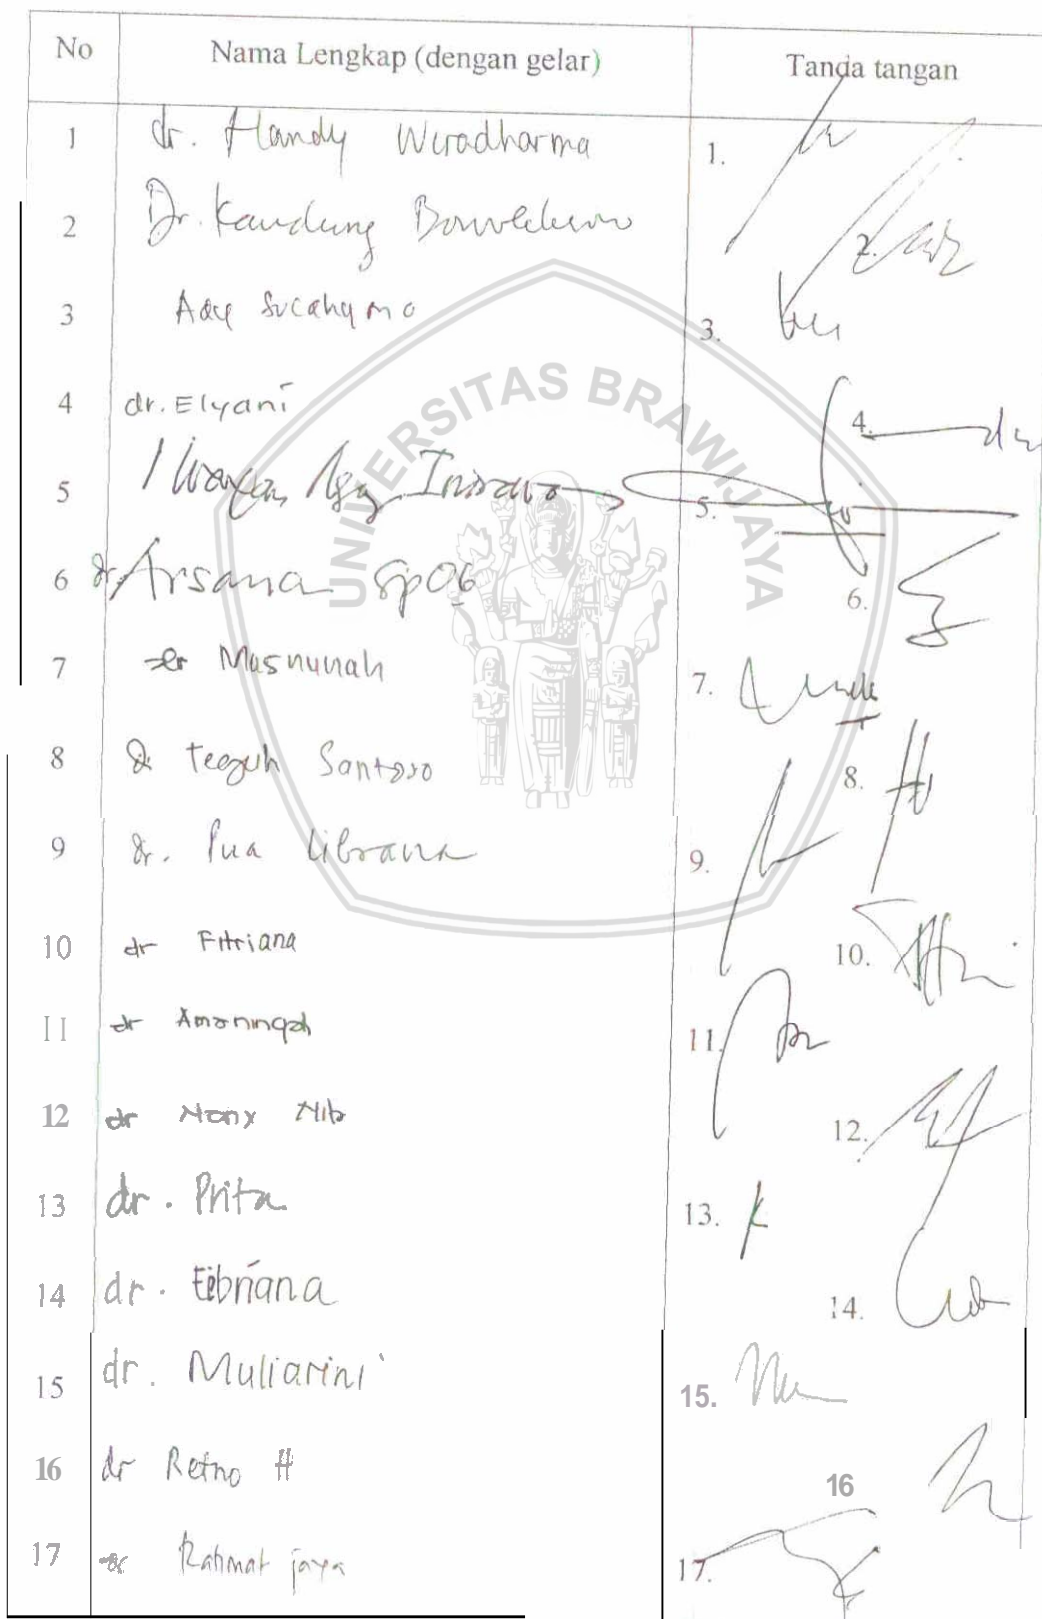 No Nama Lengkap (dengan gelar) Tanda tangan
1 dr. Handy Wiradharma 1.
2 Dr. Kandung 2.
3 Ade Sucahyono 3.
4 dr. Elyani 4.
5 I Wayan Agg 5.
6 dr Arsana SpOG 6.
7 dr Masnunah 7.
8 dr Teguh Santoso 8.
9 dr. Pua Librana 9.
10 dr Fitriana 10.
11 dr 11.
12 dr Nony 12.
13 dr. Prita 13.
14 dr. Febriana 14.
15 dr. Muliarini 15.
16 dr Retno H 16
17 dr Rahmat jaya 17.
UNIVERSITAS BRAWIJAYA